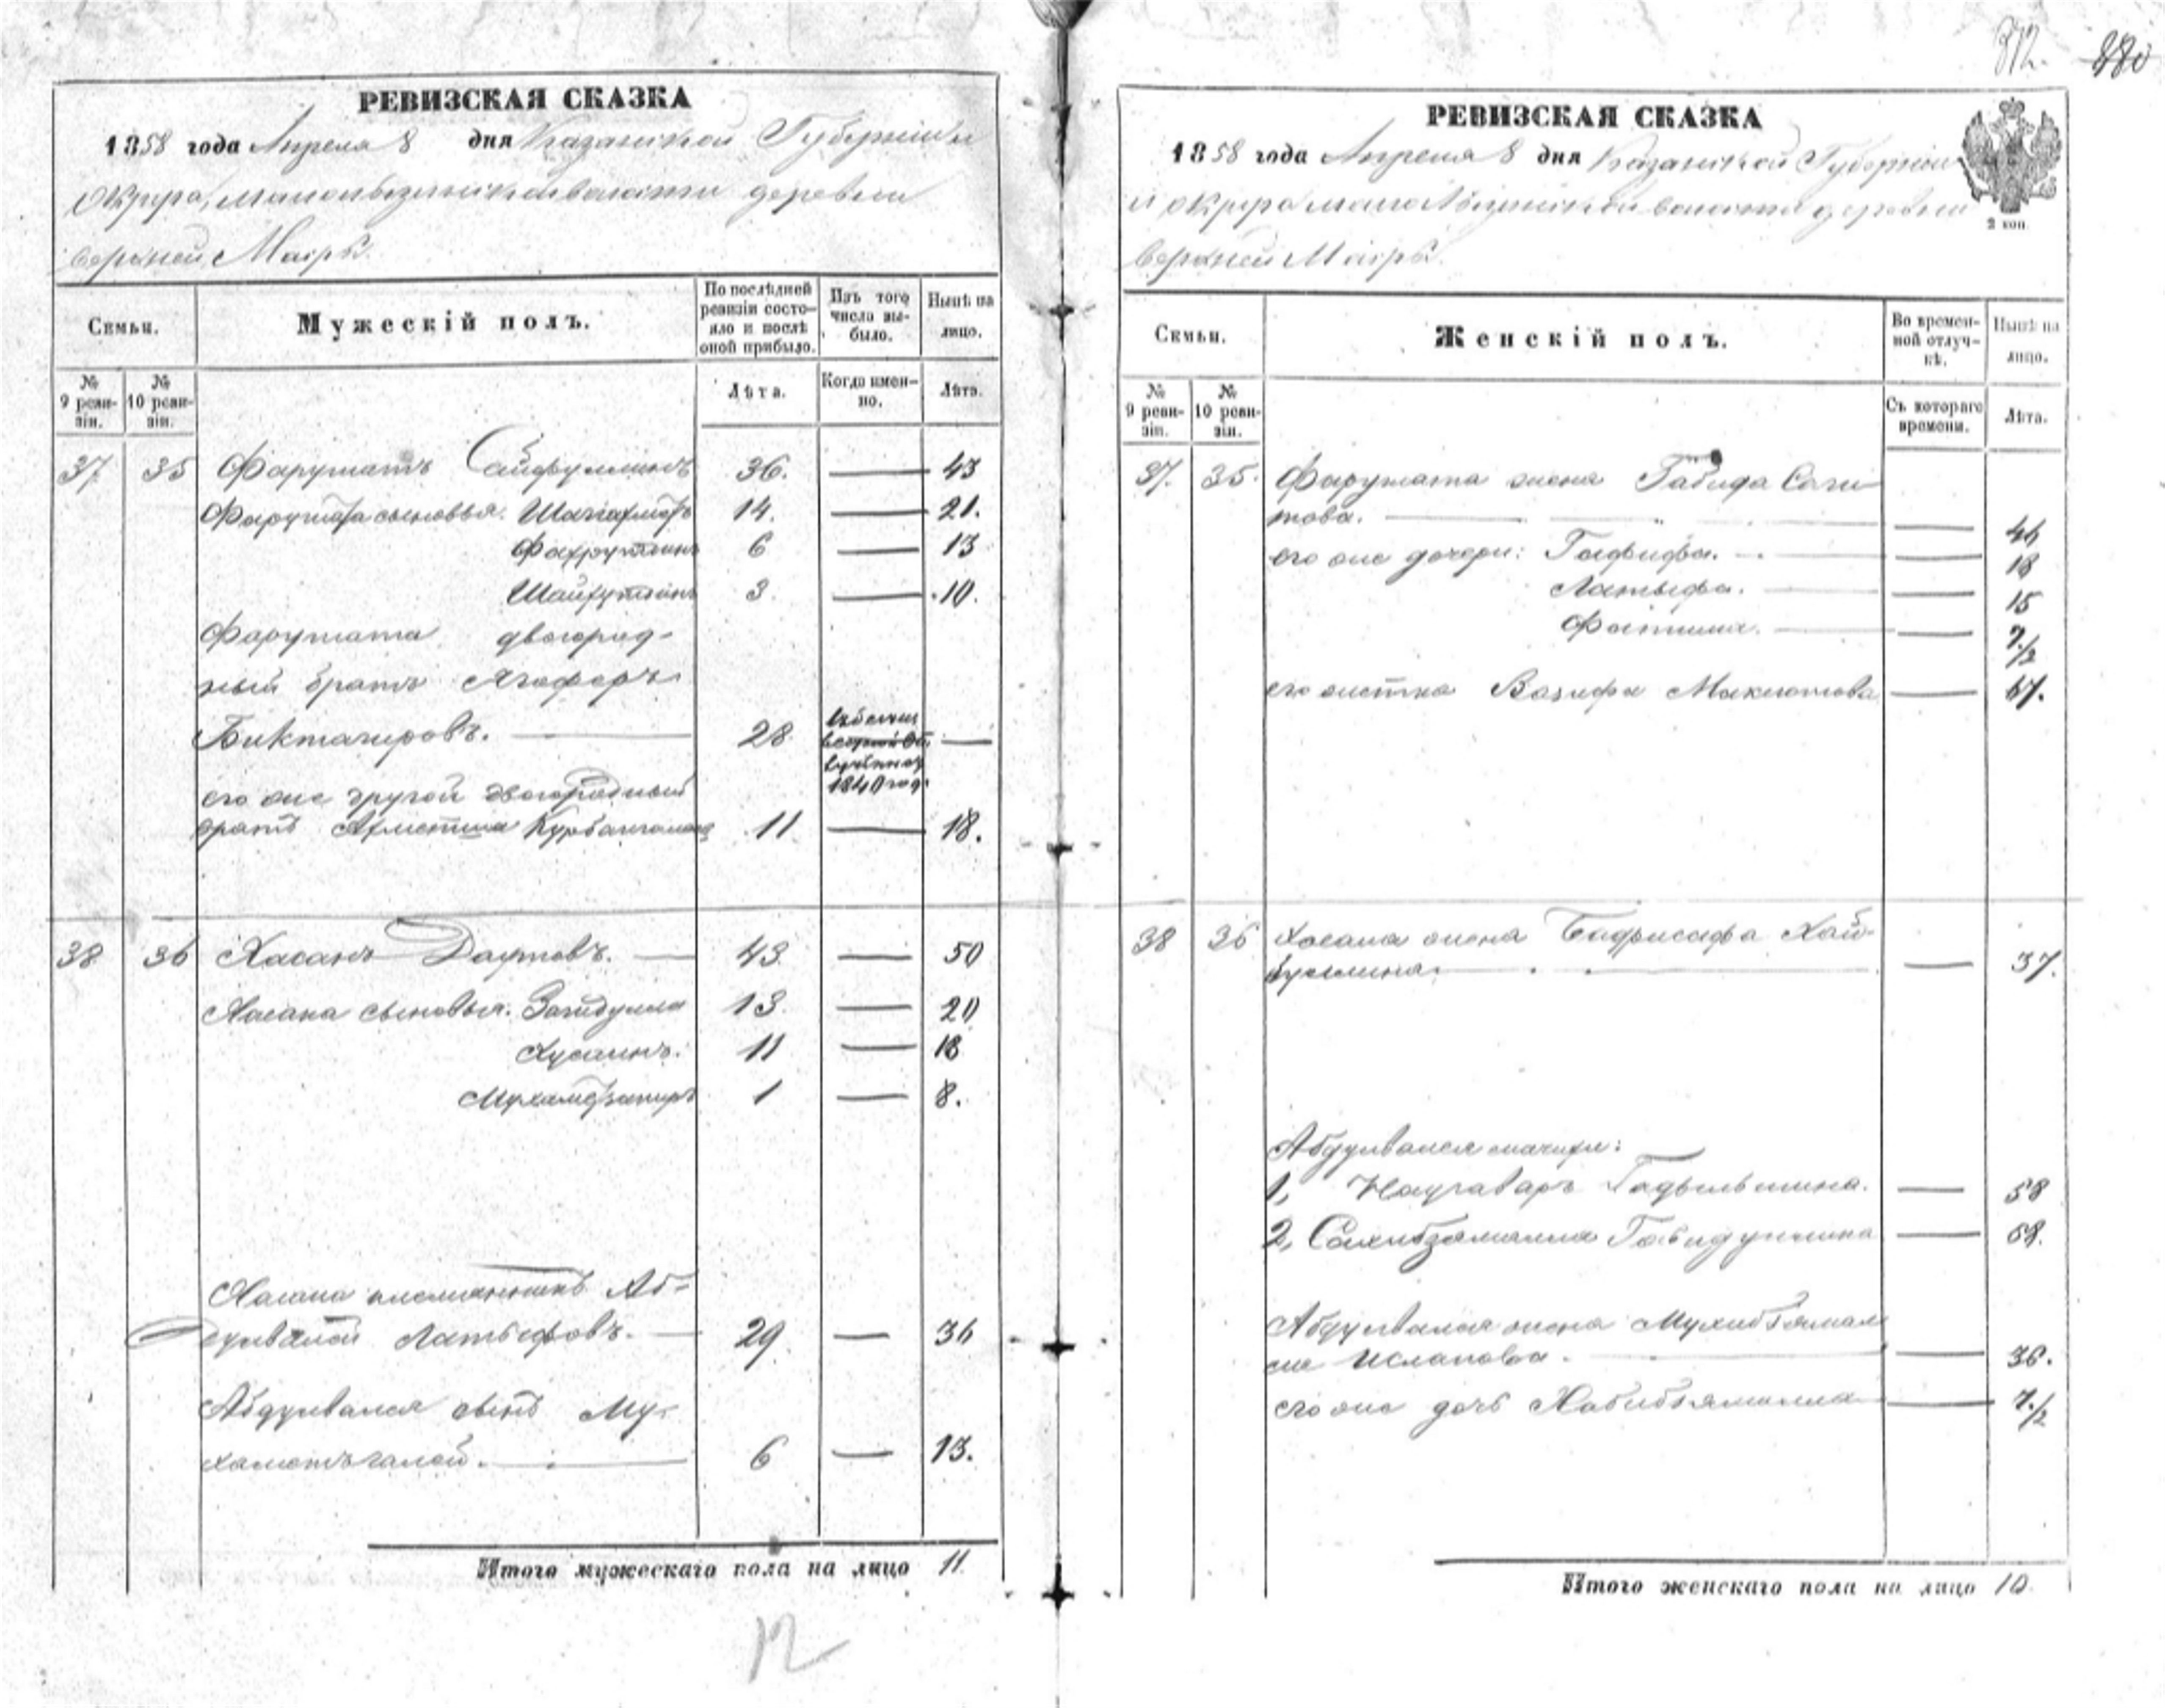 372. 380
РЕВИЗСКАЯ СКАЗКА
1858 года Апреля 8 дня Казанской Губернии и
округа, волости деревни
верхней Масры.
Семьи.
Мужескій полъ.
По послѣдней ревизіи состояло и послѣ оной прибыло.
Изъ того числа выбыло.
Нынѣ на лицо.
№ 9 ревизіи.
№ 10 ревизіи.
Лѣта.
Когда имен-но.
Лѣта.
37 35 Фарутатъ Сайфуллинъ 36. — 43
Фарутата сыновья. Шагіахметъ 14. — 21.
Фахрутдинъ 6 — 13
Шайхутдинъ 3 — 10.
Фарутата двоюрод-
ный братъ Ягофаръ
Биктагировъ. — 28 —
1840 год.
его же другой двоюродный
братъ Ахметша 11 — 18.
38 36 Хасанъ Даутовъ. — 43 — 50
Хасана сыновья. Загидулла 13 — 20
Хусаинъ. 11 — 18
Мухаметзакиръ 1 — 8.
Хасана племянникъ Аб-
дулвалей Латыфовъ. — 29 — 36
Абдулвалея сынъ Му-
хаметъгалей. — 6 — 13.
Итого мужескаго пола на лицо 11
12
РЕВИЗСКАЯ СКАЗКА
1858 года Апреля 8 дня Казанской Губерніи
и округа волости деревни
верхней Масры.
2 коп
Семьи.
Женскій полъ.
Во времен-ной отлуч-кѣ.
Нынѣ на лицо.
№ 9 ревизіи.
№ 10 ревизіи.
Съ котораго времени.
Лѣта.
37. 35. Фарутата жена Габида Саги-
това. — 46
его же дочери: Гафифа. — 18
Латыфа. — 15
Фатима. — 7 1/2
его тетка Вазифа Максютова — 67.
38 36 Хасана жена Бадрисафа Хай-
буллина. — 37.
Абдулвалея мачихи:
1, — 58
2, Сахибзямалия Габидуллина — 68.
Абдулвалея жена Мухибзямал
— 36.
его же дочь Хабибзямалия — 7 1/2
Итого женскаго пола на лицо 10